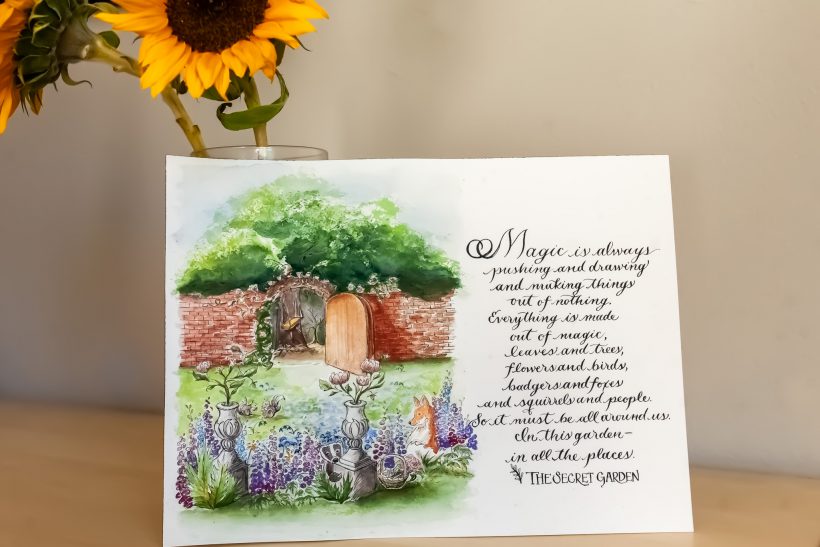 Magic is always
pushing and drawing
and making things
out of nothing.
Everything is made
out of magic,
leaves and trees,
flowers and birds,
badgers and foxes
and squirrels and people.
So it must be all around us.
In this garden—
in all the places.
THE SECRET GARDEN